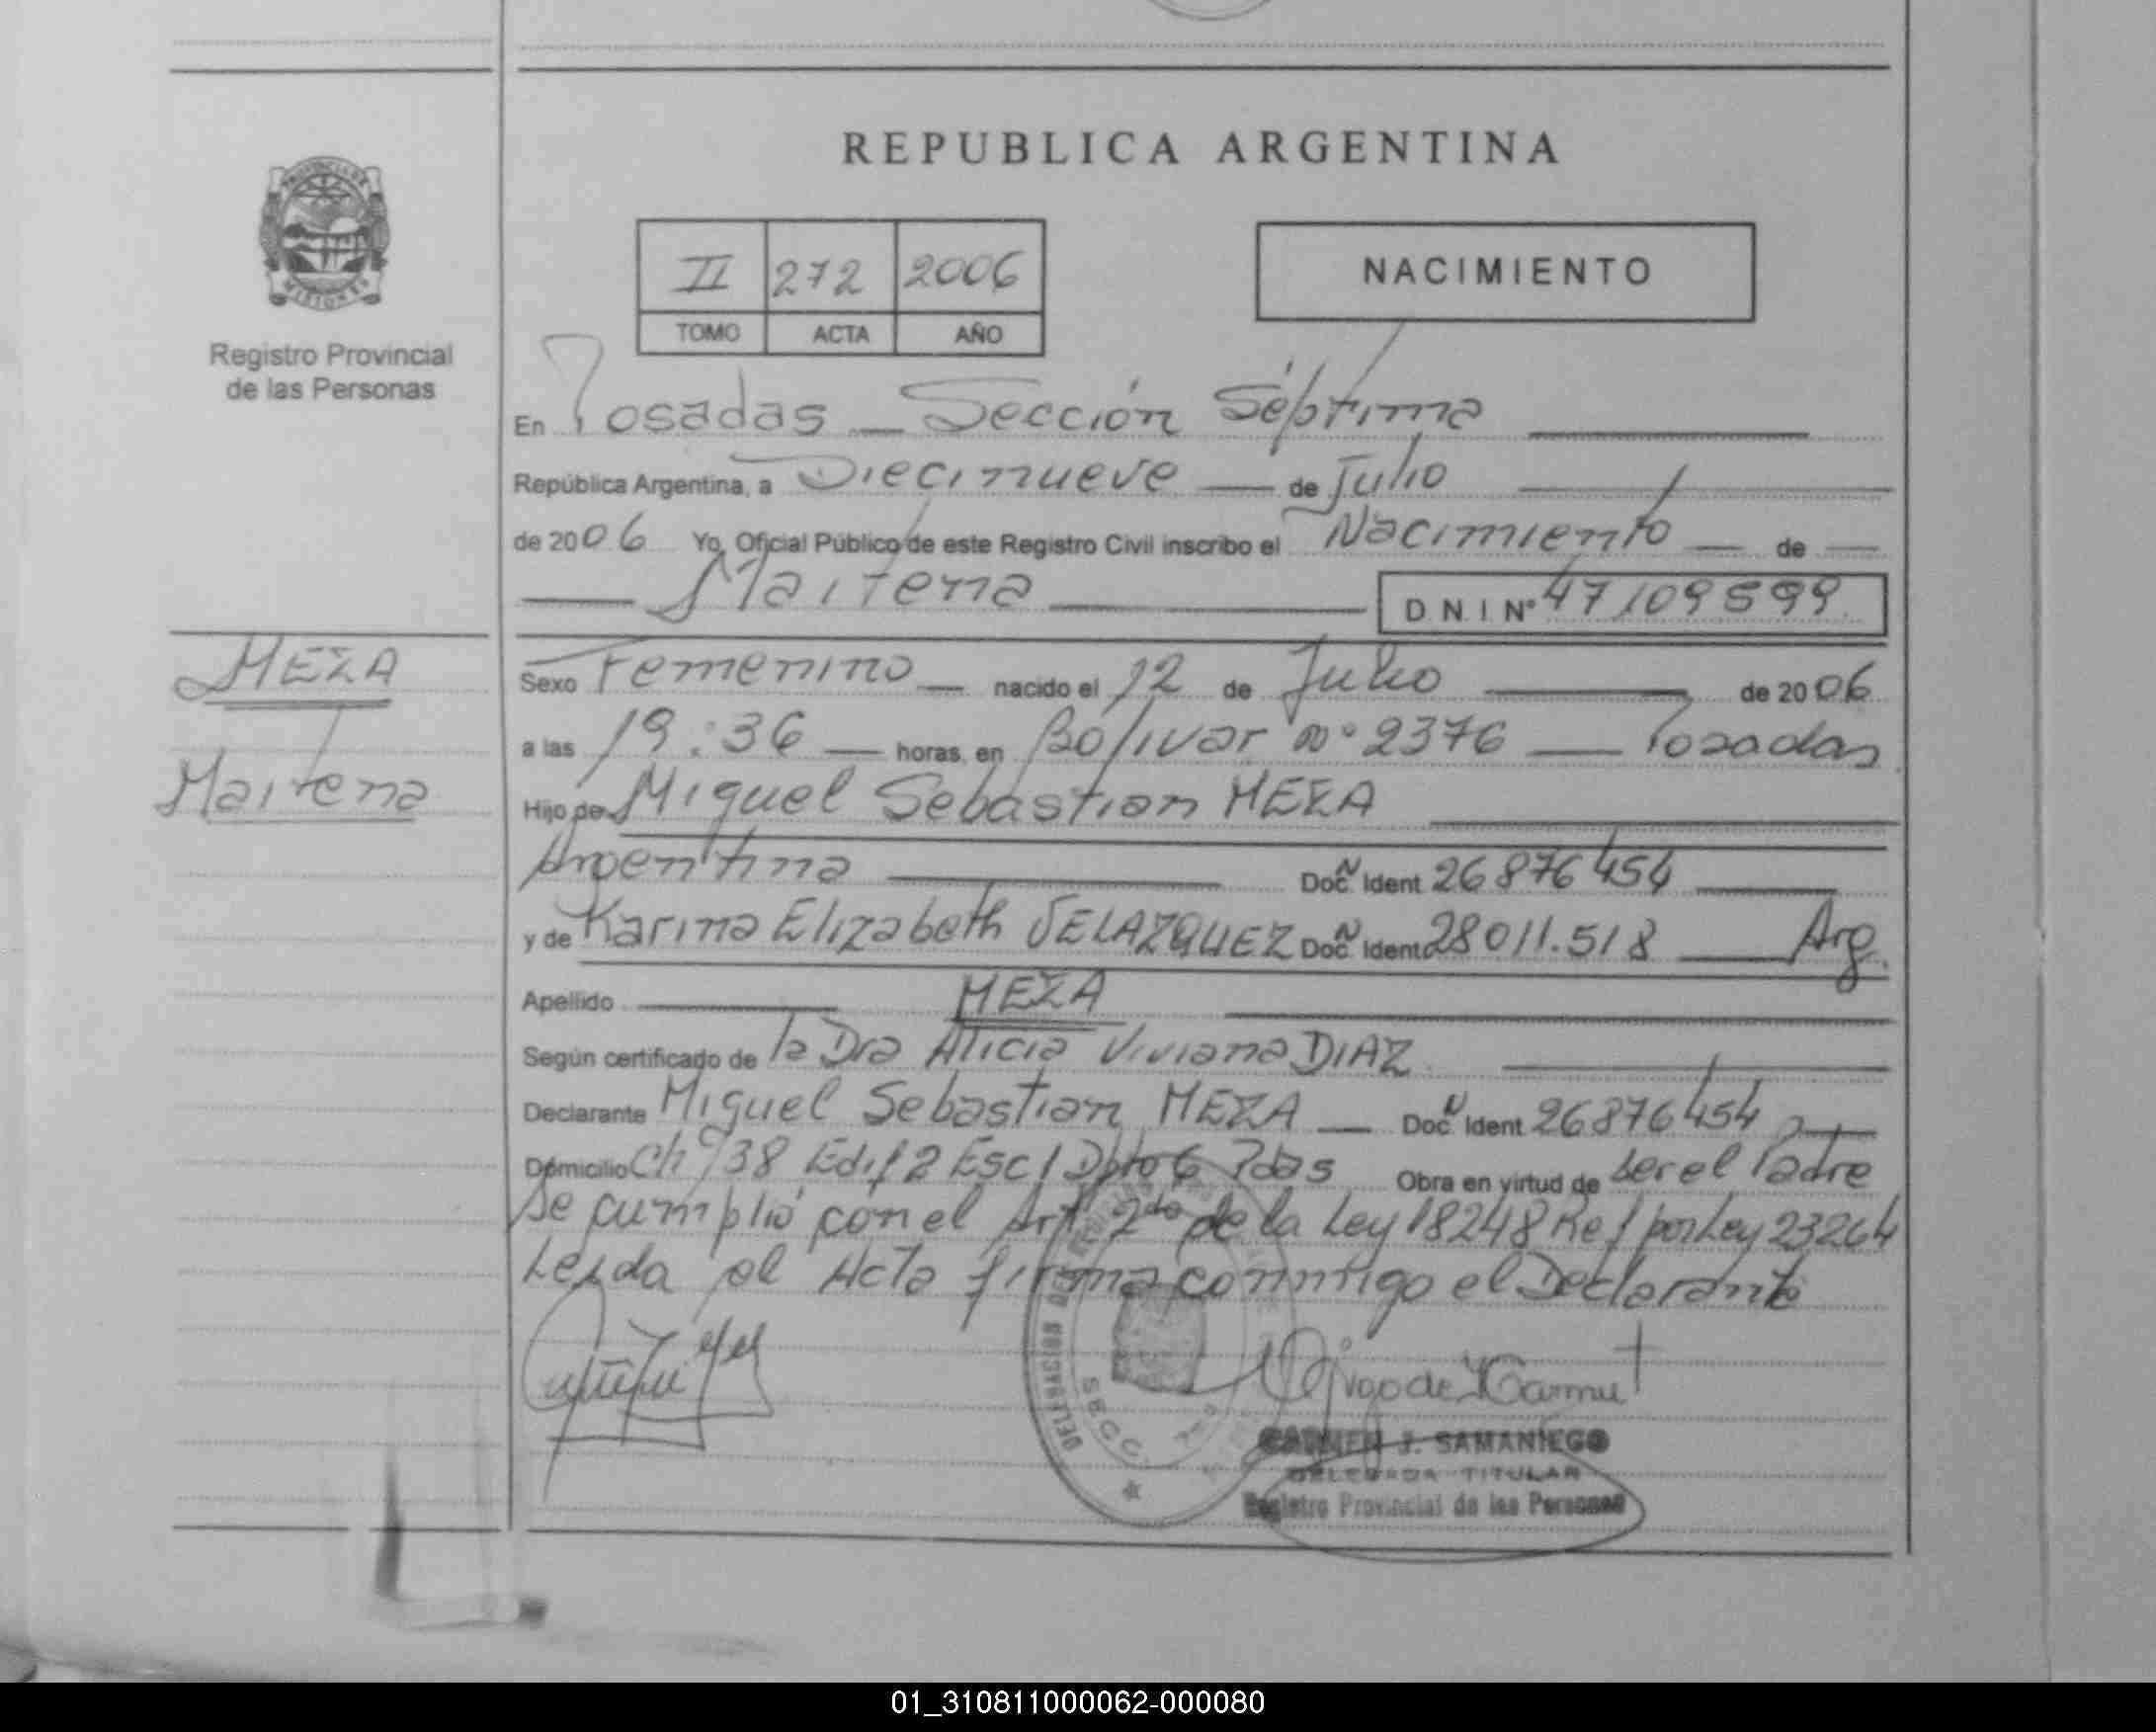 REPUBLICA ARGENTINA
PROVINCIA DE
MISIONES
Registro Provincial
de las Personas
II 272 2006
TOMO ACTA AÑO
NACIMIENTO
En Posadas — Sección Séptima
República Argentina, a Diecinueve — de Julio
de 2006 Yo, Oficial Público de este Registro Civil inscribo el Nacimiento — de —
Maitena
D.N.I. Nº 47109599
MEZA
Maitena
Sexo Femenino — nacido el 12 de Julio — de 2006
a las 19:36 — horas, en Bolivar nº 2376 — Posadas
Hijo de Miguel Sebastian MEZA
Argentina — Doc. N Ident 26876454
y de Karina Elizabeth VELAZQUEZ Doc. N Ident 28011.518 — Arg.
Apellido — MEZA
Según certificado de la Dra Alicia Viviana DIAZ
Declarante Miguel Sebastian MEZA — Doc. N Ident 26876454
Domicilio Ch 138 Edif 2 Esc 1 Dpto 6 Pdas Obra en virtud de ser el Padre
Se cumplió con el Art 2do de la Ley 18248 Ref por Ley 23264
Leída el Acta firma conmigo el Declarante
DELEGACION
SECC.
CARMEN J. SAMANIEGO
DELEGADA TITULAR
Registro Provincial de las Personas
01_310811000062-000080